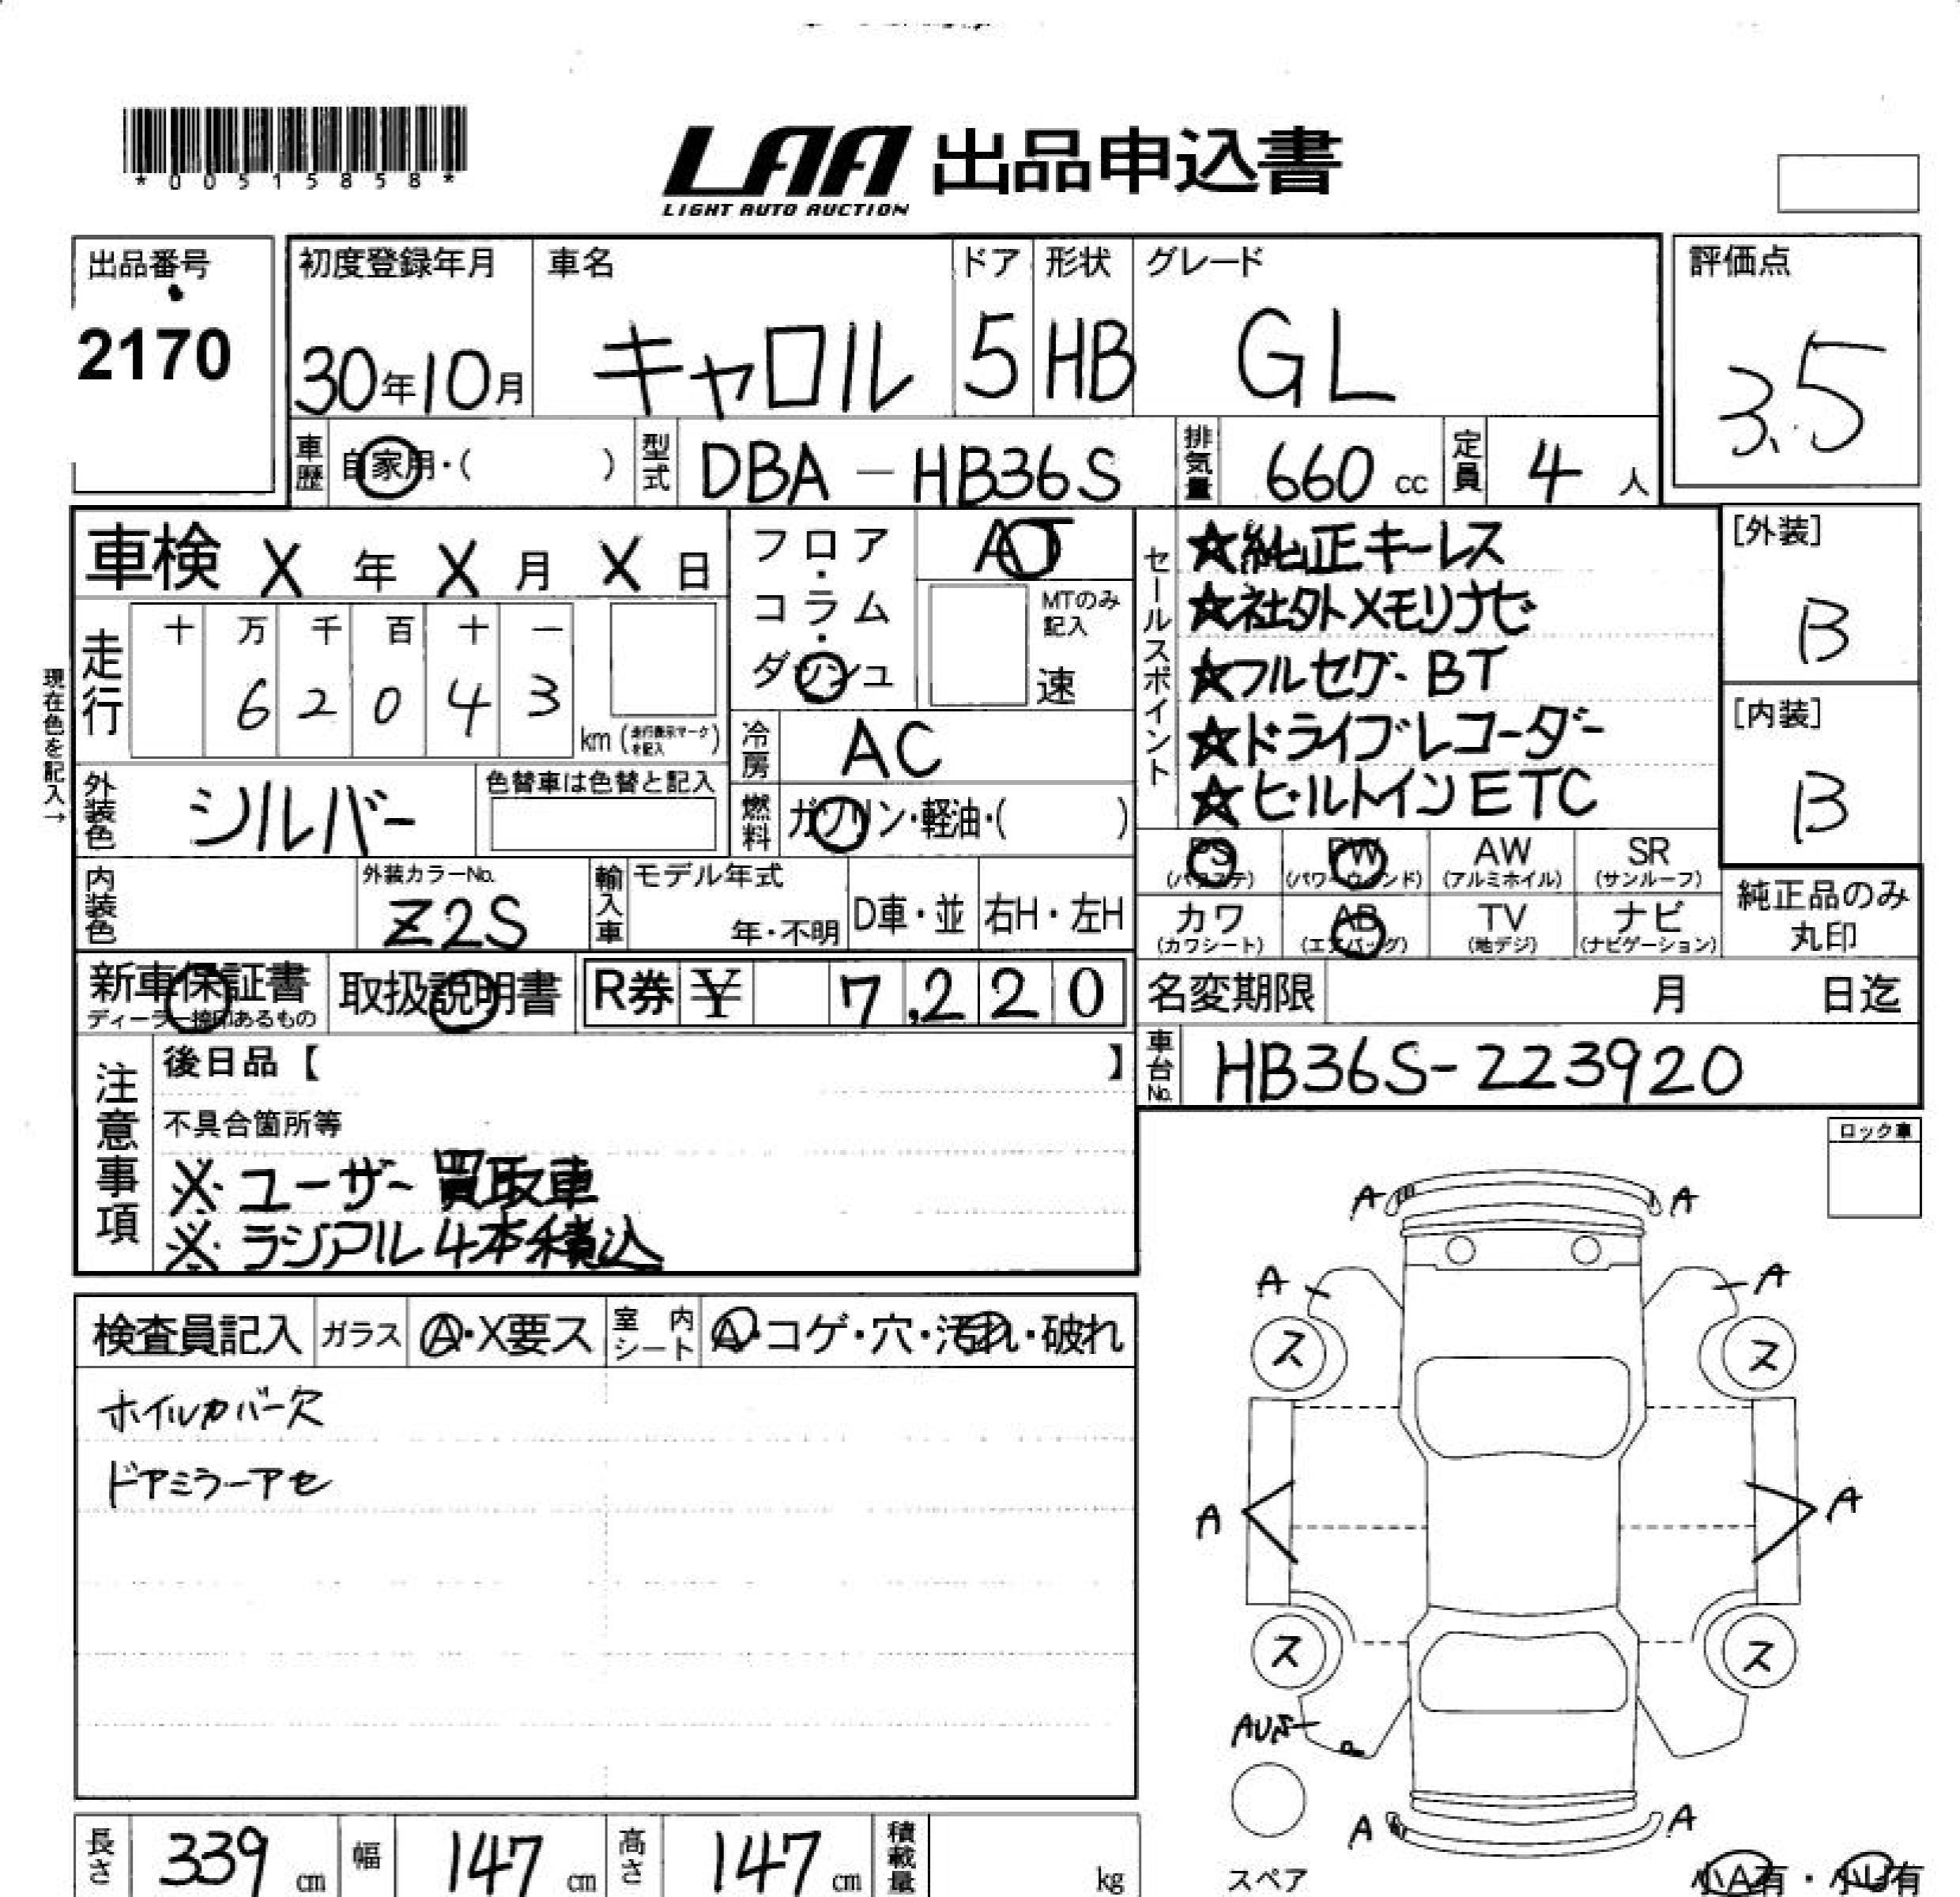 *00515858*
LAA 出品申込書
LIGHT AUTO AUCTION
出品番号
2170
初度登録年月
30年10月
車名
キャロル
ドア
5
形状
HB
グレード
GL
評価点
3.5
車歴 自家用・( )
型式 DBA-HB36S
排気量 660 cc
定員 4 人
車検 X 年 X 月 X 日
フロア・コラム・ダッシュ
AT
MTのみ記入
速
走行
十 万 千 百 十 一
6 2 0 4 3
km (走行表示マークを記入)
現在色を記入→
冷房 AC
外装色 シルバー
色替車は色替と記入
燃料 ガソリン・軽油・( )
セールスポイント
☆純正キーレス
☆社外メモリナビ
☆フルセグ・BT
☆ドライブレコーダー
☆ビルトインETC
[外装]
B
[内装]
B
PS (パワステ)
PW (パワーウィンド)
AW (アルミホイル)
SR (サンルーフ)
カワ (カワシート)
AB (エアバッグ)
TV (地デジ)
ナビ (ナビゲーション)
純正品のみ
丸印
内装色
外装カラーNo.
Z2S
輸入車
モデル年式
年・不明
D車・並
右H・左H
新車保証書
ディーラー捺印あるもの
取扱説明書
R券 ¥ 7,220
名変期限 月 日迄
車台No. HB36S-223920
注意事項
後日品【 】
不具合箇所等
※ ユーザー買取車
※ ラジアル4本積込
ロック車
検査員記入
ガラス A・X要ス
室内シート A・コゲ・穴・汚れ・破れ
ホイルカバー欠
ドアミラーアセ
A A
A A
ス ス
A A
ス ス
A A
スペア
小A有・小U有
長さ 339 cm
幅 147 cm
高さ 147 cm
積載量 kg